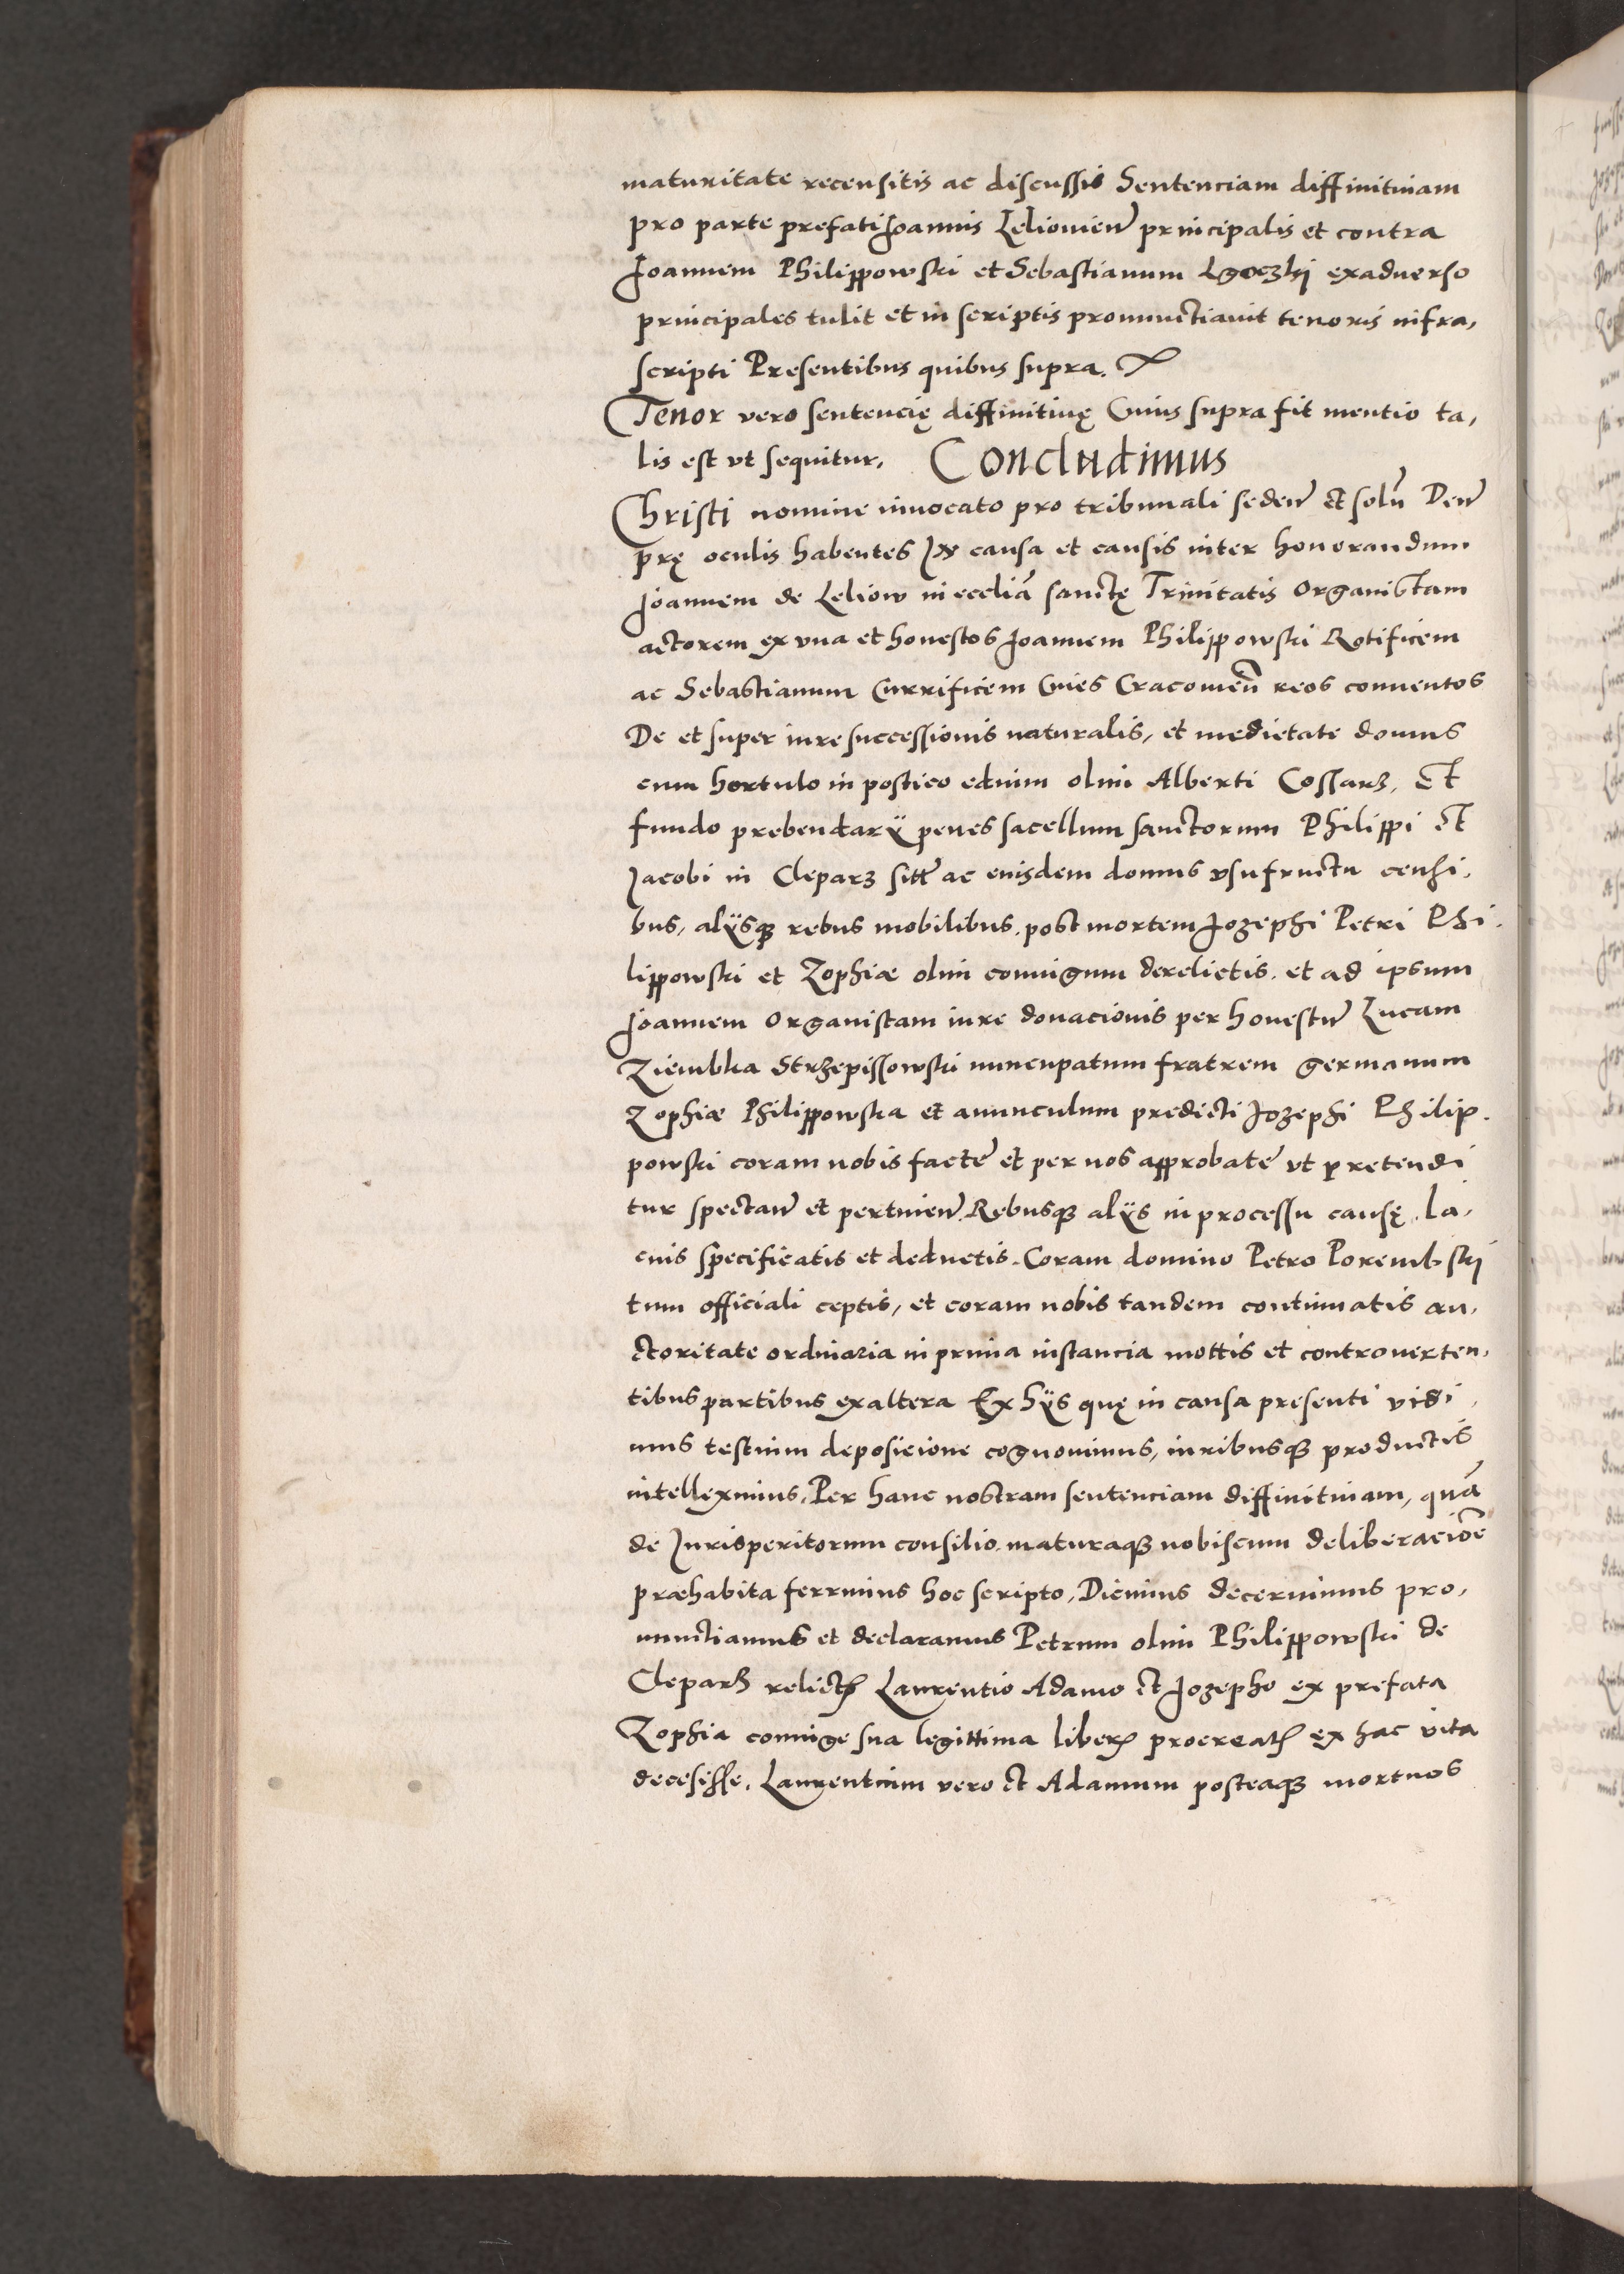 maturitate recensitis ac discussis Sentenciam diffinitiuam
pro parte prefati Joannis Leliouien̄ principalis et contra
Joannem Philippowski et Sebastianum Lgoczki exaduerso
principales tulit et in scriptis pronunctiauit tenoris infra,
scripti Presentibus quibus supra.
Tenor vero sentencię diffinitiuę Cuius supra fit mentio ta,
lis est vt sequitur, Concludimus
Christi nomine inuocato pro tribunali seden̄ et solū Deū
prę oculis habentes In causa et causis inter honorandum
Joannem de Leliow in ecclīa sanctę Trinitatis Organistam
actorem ex vna et honestos Joannem Philippowski Rotificem
ac Sebastianum Currificem Ciues Cracouieñ reos conuentos
De et super iure successionis naturalis, et medietate domus
cum hortulo in postico edium olim Alberti Cossarz, Et
fundo prebendarÿ penes sacellum sanctorum Philippi et
Jacobi in Cleparz sitte ac eiusdem domus vsufructu censi,
bus, alÿsq3 rebus mobilibus, post mortem Jozephi Petri Phi,
lippowski et Zophiæ olim coniugum derelictis, et ad ipsum
Joannem Organistam iure donacionis per honestū Lucam
Ziembka Strzepissowski nuncupatum fratrem germanum
Zophiæ Philippowska et auunculum predicti Jozephi Philip,
powski coram nobis factē et per nos approbatē vt pretendi
tur spectan̄ et pertinen̄. Rebusq3 alÿs in processu causę la,
cius specificatis et deductis. Coram domino Petro Porembskj
tum officiali ceptis, et coram nobis tandem continuatis au,
ctoritate ordinaria in prima instancia mottis et controuerten,
tibus partibus exaltera Ex hÿs quę in causa presenti vidi,
mus testium deposicione cognouimus, iuribusq3 productis
intelleximus. Per hanc nostram sentenciam diffinitiuam, quā
de Jurisperitorum consilio, maturaq3 nobiscum deliberaciōe
præhabita ferrimus hoc scripto, Dicimus decernimus pro,
nunctiamus et declaramus Petrum olim Philippowski de
Cleparz relictis Laurentio Adamo et Jozepho ex prefata
Zophia coniuge sua legittima liberis procreatis ex hac vita
decesisse. Laurentium vero et Adamum posteaq3 mortuos